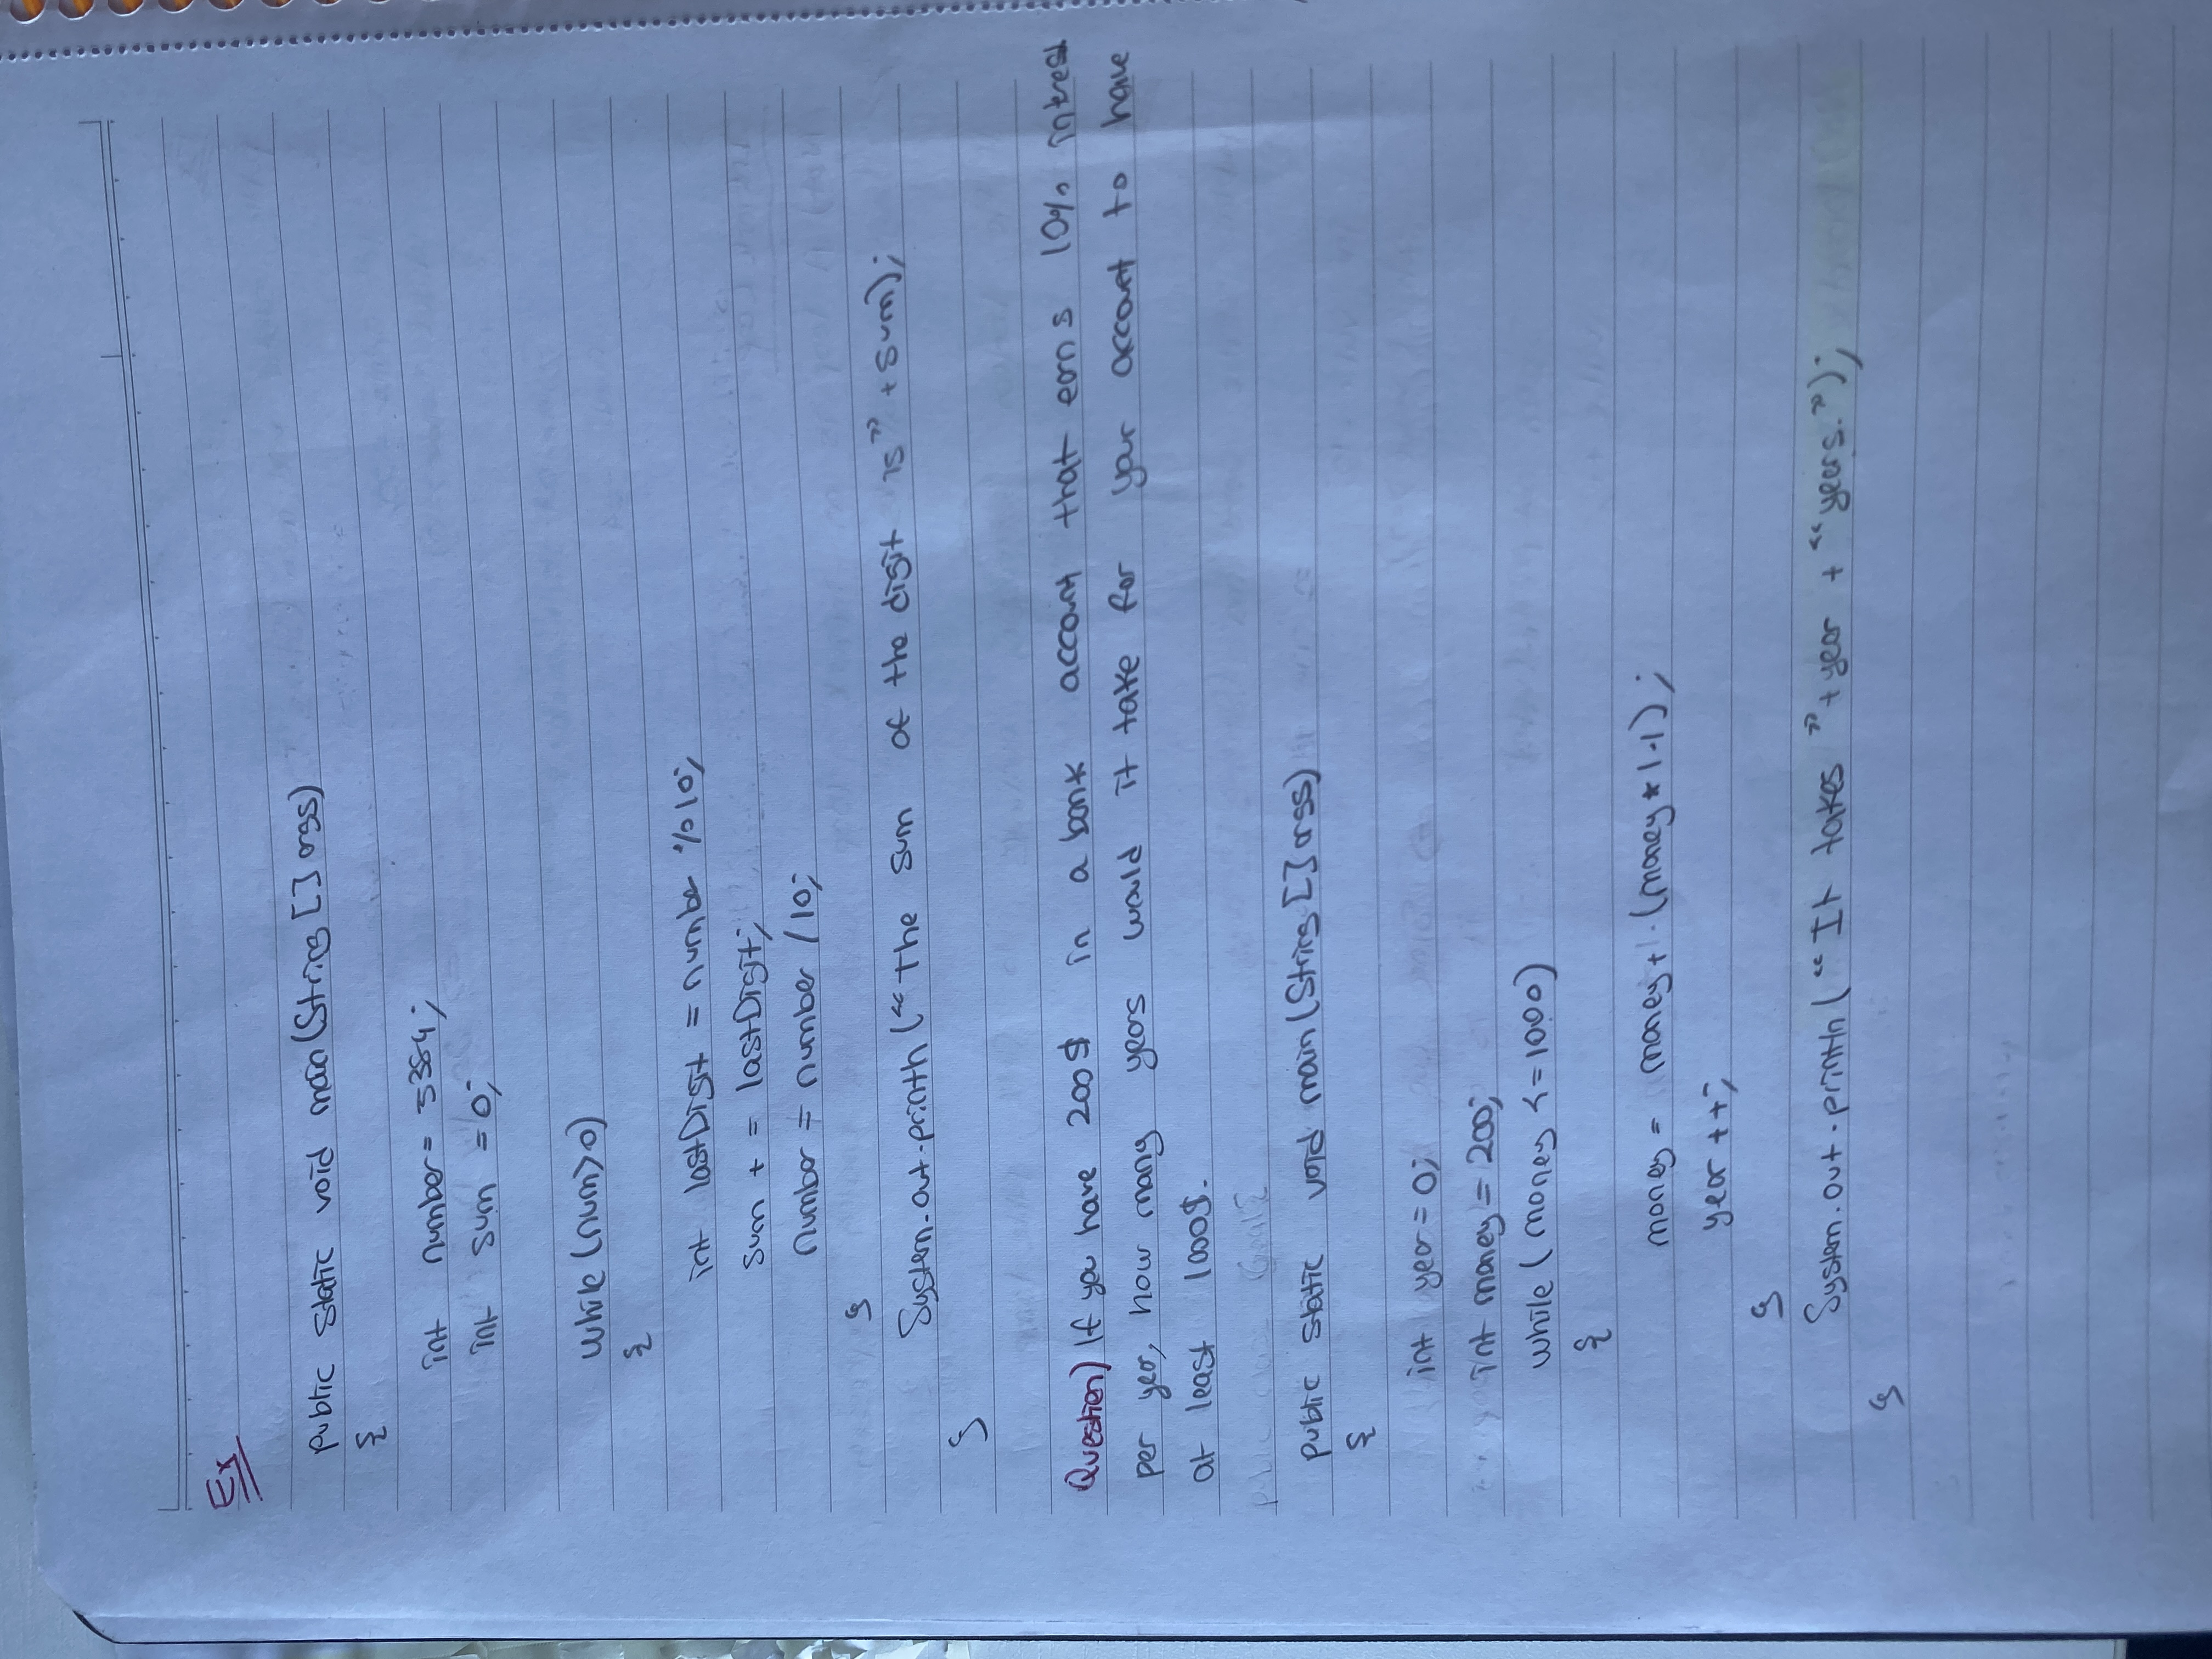 Ex
public static void main(String [] args)
{
int number = 5384;
int sum = 0;
while (num>0)
{
int lastDigit = number % 10;
sum + = lastDigit;
number = number / 10;
}
System.out.println (“The sum of the digit is” + sum);
}
Question) If you have 200$ in a bank account that earns 10% interest
per year, how many years would it take for your account to have
at least 1000$.
public static void main (String [] args)
{
int year = 0;
int money = 200;
while ( money <= 1000)
{
money = money + (money * 1.1) ;
year ++;
}
System.out.println ( “It takes ” + year + “years.”);
}